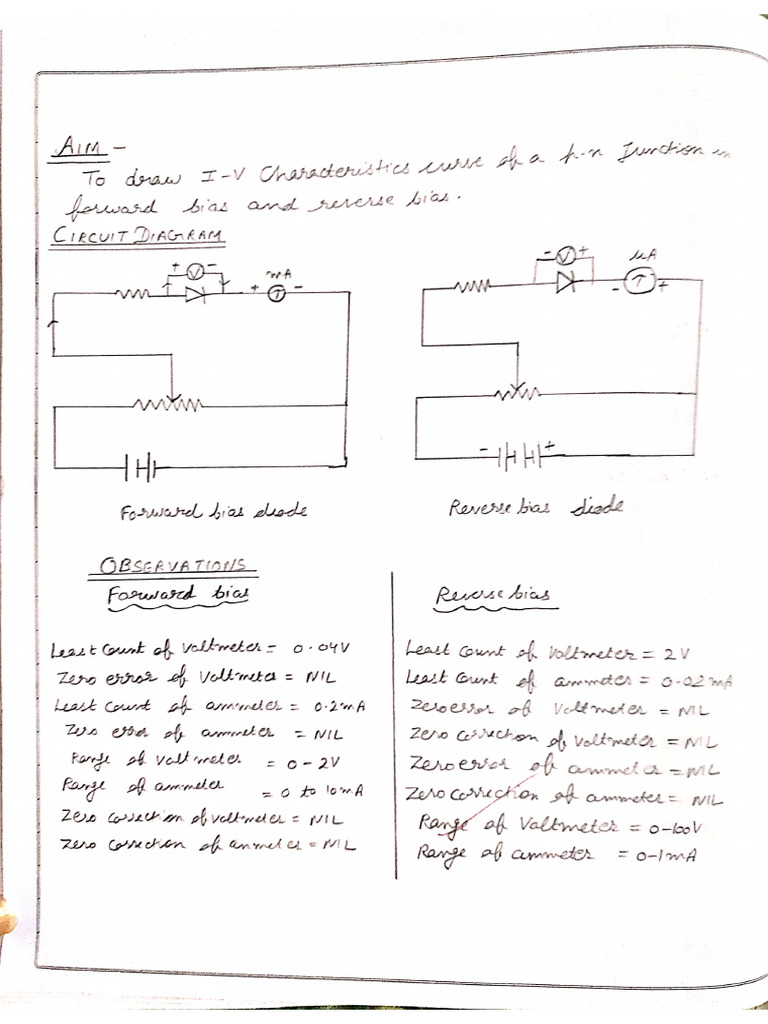 AIM -
To draw I-V Characteristics curve of a p-n Junction in
forward bias and reverse bias.
CIRCUIT DIAGRAM
+ V - mA
+ T -
- V + μA
- T +
- +
Forward bias diode
Reverse bias diode
OBSERVATIONS
Forward bias
Least Count of Voltmeter = 0.04V
Zero error of Voltmeter = NIL
Least Count of ammeter = 0.2mA
Zero error of ammeter = NIL
Range of Voltmeter = 0-2V
Range of ammeter = 0 to 10mA
Zero correction of voltmeter = NIL
Zero correction of ammeter = NIL
Reverse bias
Least Count of Voltmeter = 2V
Least Count of ammeter = 0.02mA
Zero error of Voltmeter = NIL
Zero Correction of Voltmeter = NIL
Zero error of ammeter = NIL
Zero Correction of ammeter = NIL
Range of Voltmeter = 0-100V
Range of ammeter = 0-1mA